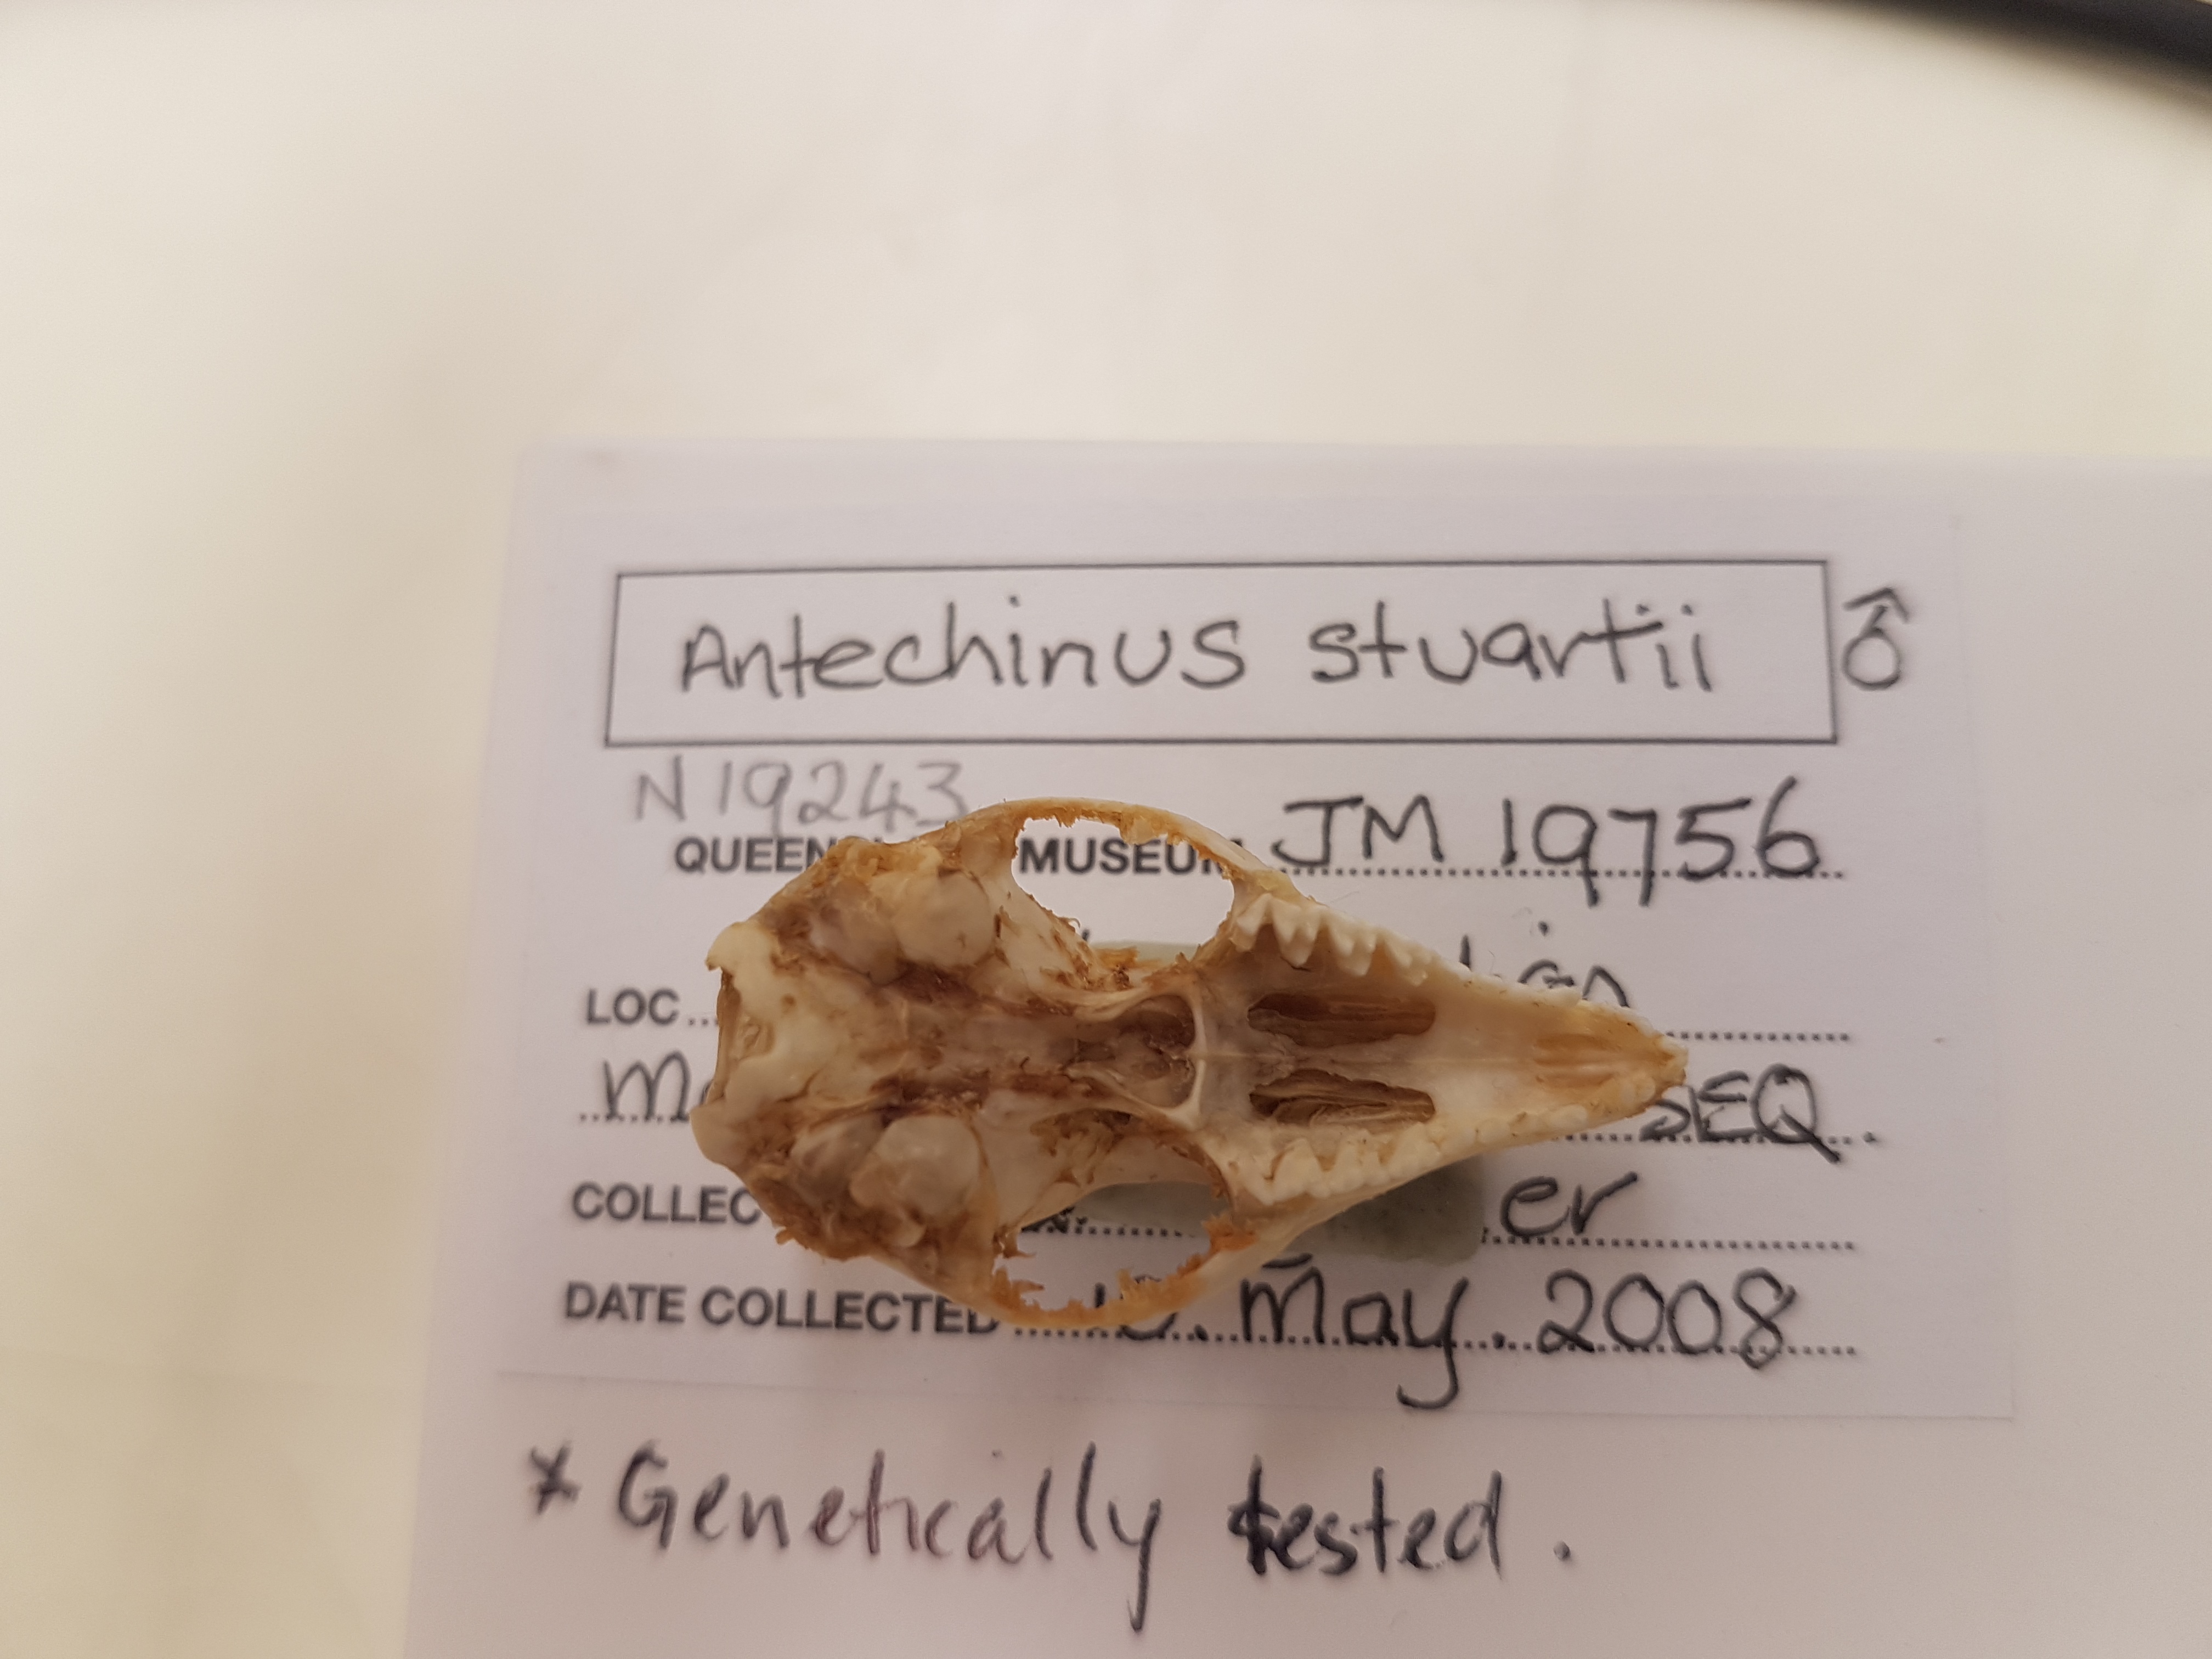 Antechinus stuartii ♂
N19243
QUEEN MUSEUM JM 19756
LOC
SEQ
COLLEC er
DATE COLLECTED May 2008
* Genetically tested.